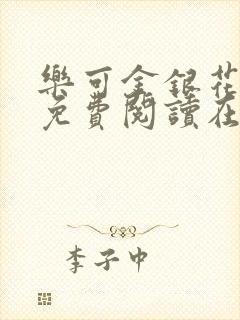 樂可金銀花
免費閱讀在
李子中